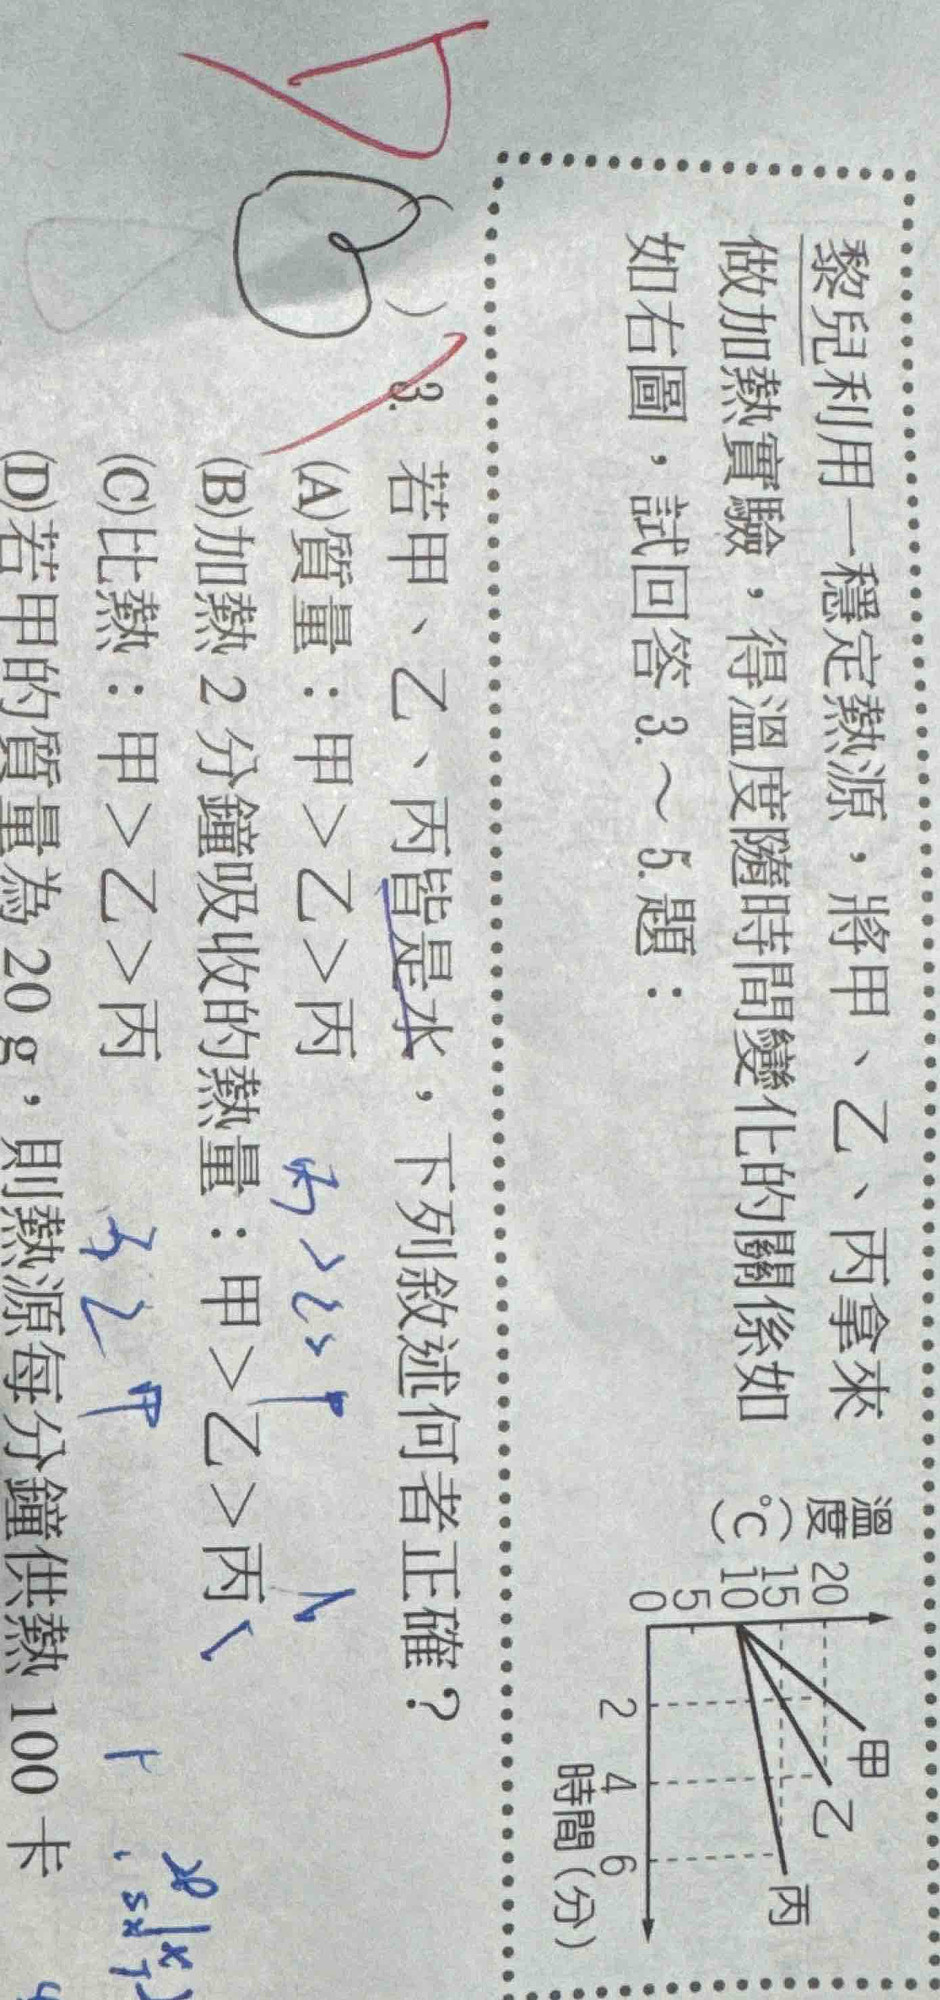 黎兒利用一穩定熱源，將甲、乙、丙拿來
做加熱實驗，得溫度隨時間變化的關係如
如右圖，試回答 3.～5.題：
溫度
(℃)
20
15
10
5
0
2
4
6
時間(分)
甲
乙
丙
( ) 3. 若甲、乙、丙皆是水，下列敘述何者正確？
(A)質量：甲＞乙＞丙
丙＞乙＞甲
(B)加熱 2 分鐘吸收的熱量：甲＞乙＞丙
(C)比熱：甲＞乙＞丙
乙 甲
(D)若甲的質量為 20 g，則熱源每分鐘供熱 100 卡